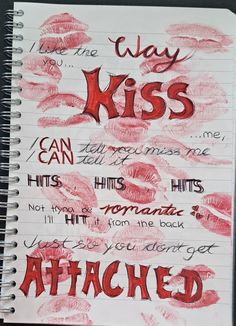 I like the way
you...
Kiss
...me,
I CAN tell you miss me
CAN tell it
HITS HITS HITS
Not tryna be romantic
I'll HIT it from the back
Just so you dont get
ATTACHED